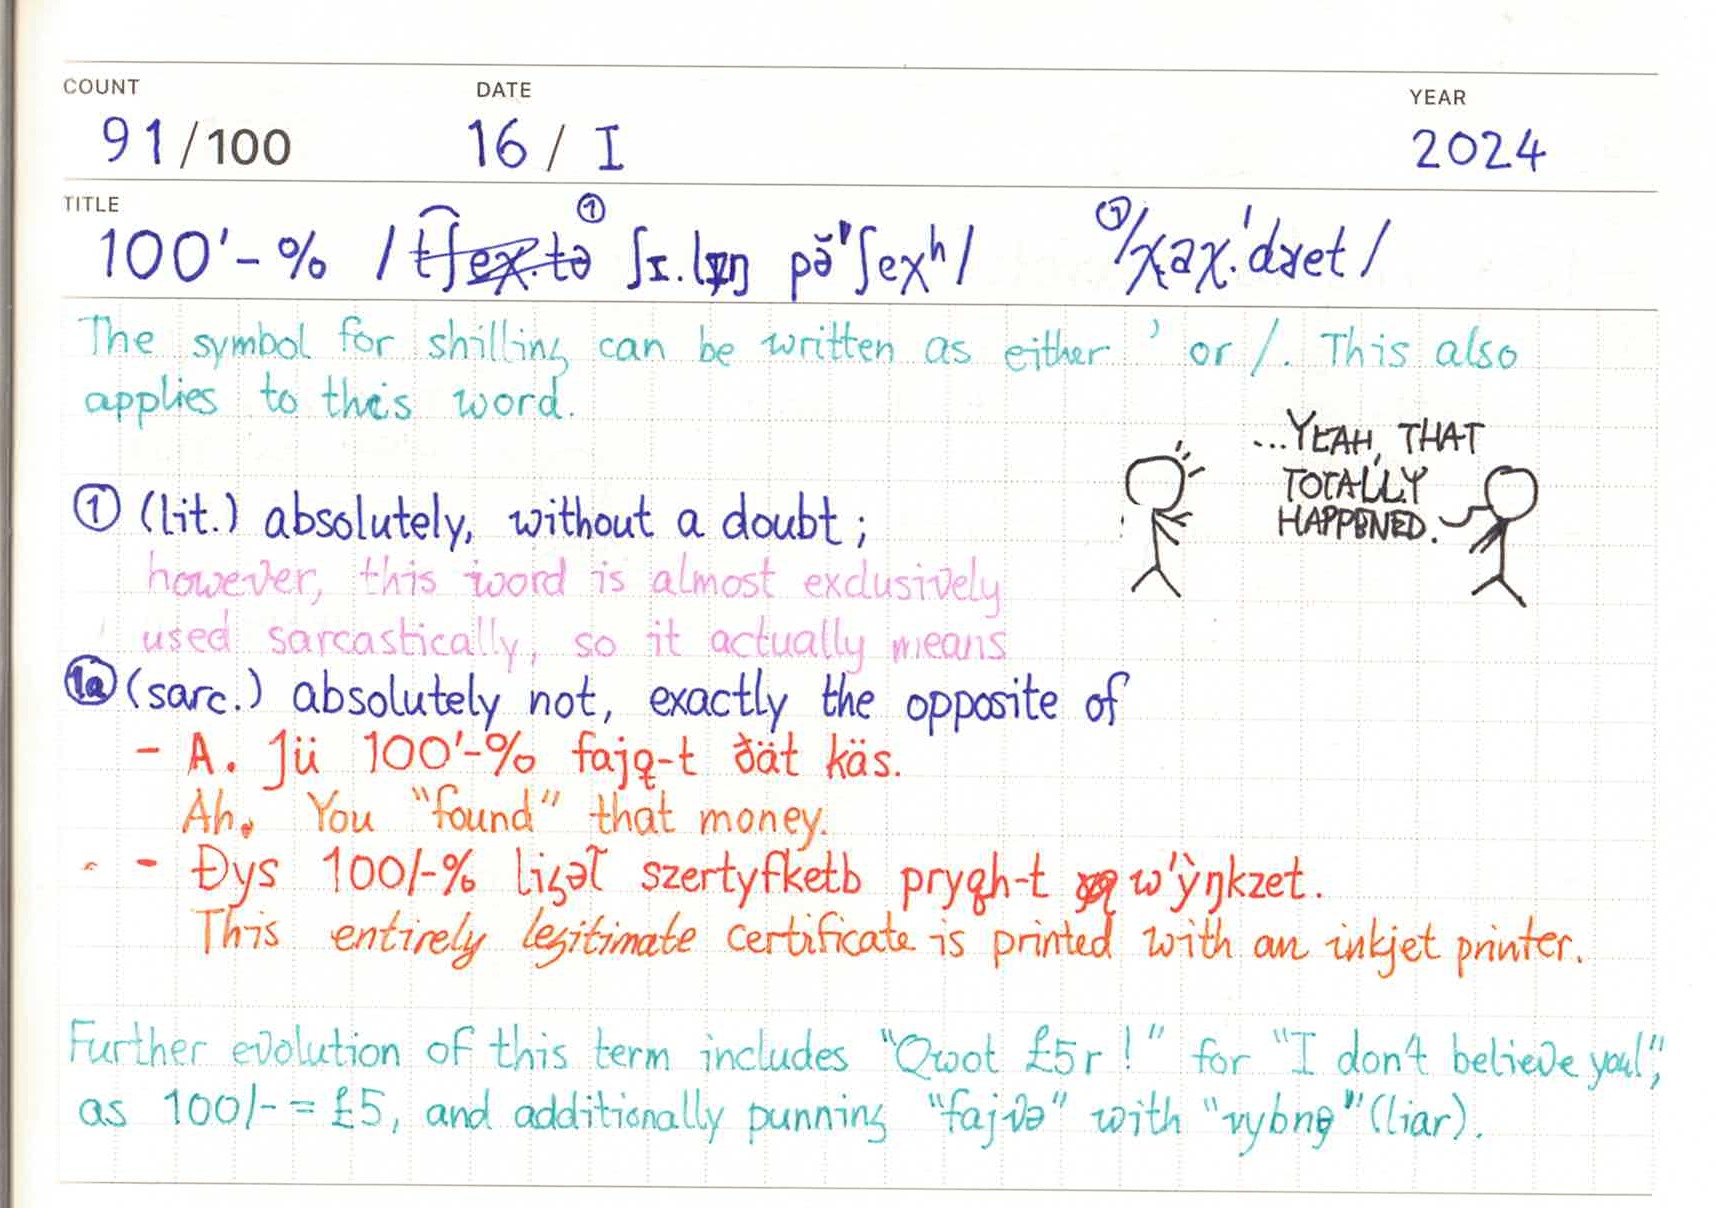 COUNT DATE YEAR
91/100 16 / I 2024
TITLE
100'-% / ʃɪ.lɪŋ pə̆'ʃexʰ/ /χəχ.'dɤet/
The symbol for shilling can be written as either ’ or /. This also
applies to this word.
...YEAH, THAT
TOTALLY
HAPPENED.
① (lit.) absolutely, without a doubt;
however, this word is almost exclusively
used sarcastically, so it actually means
1a (sarc.) absolutely not, exactly the opposite of
- A. Jü 100'-% fajq-t ðät käs.
Ah. You "found" that money.
- Ðys 100/-% szertyfketb pryqh-t w'ỳŋkzet.
This entirely legitimate certificate is printed with an inkjet printer.
Further evolution of this term includes "Qwot £5r!" for "I don't believe you!",
as 100/- = £5, and additionally punning "fajvə" with "vybnə" (liar).